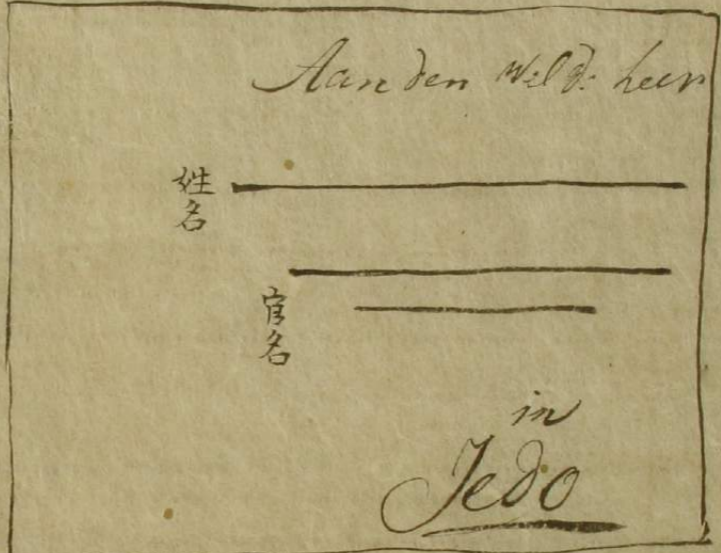 Aan den Wel Ed: heer
姓名
官名
in
Jedo